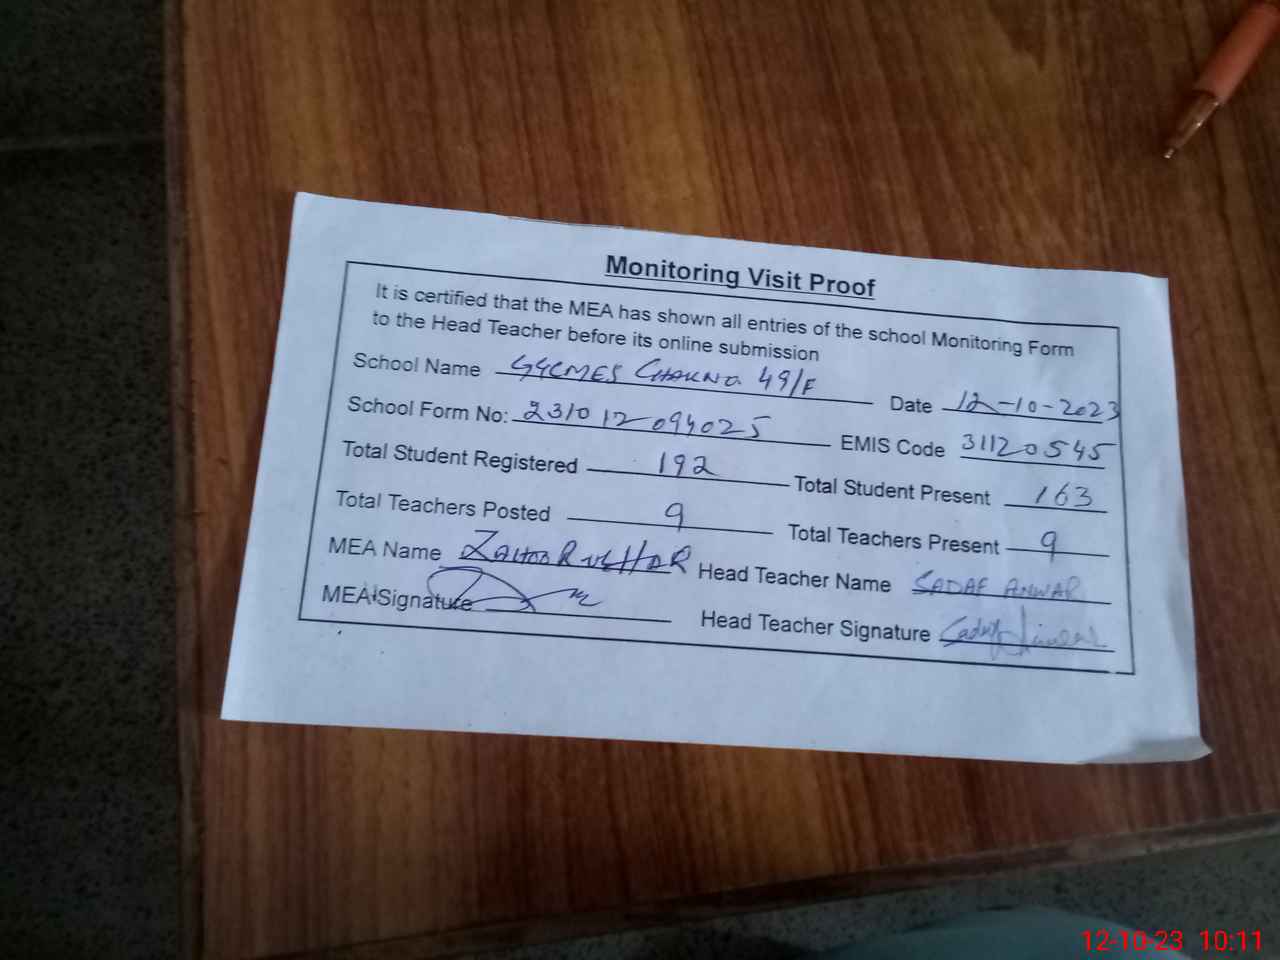 Monitoring Visit Proof
It is certified that the MEA has shown all entries of the school Monitoring Form
to the Head Teacher before its online submission
School Name GGCMES CHAKNO. 49/F Date 12-10-2023
School Form No: 231012094025 EMIS Code 31120545
Total Student Registered 192 Total Student Present 163
Total Teachers Posted 9 Total Teachers Present 9
MEA Name ZAHOOR UL HAQ Head Teacher Name SADAF ANWAR
MEA Signature Head Teacher Signature
12-10-23 10:11